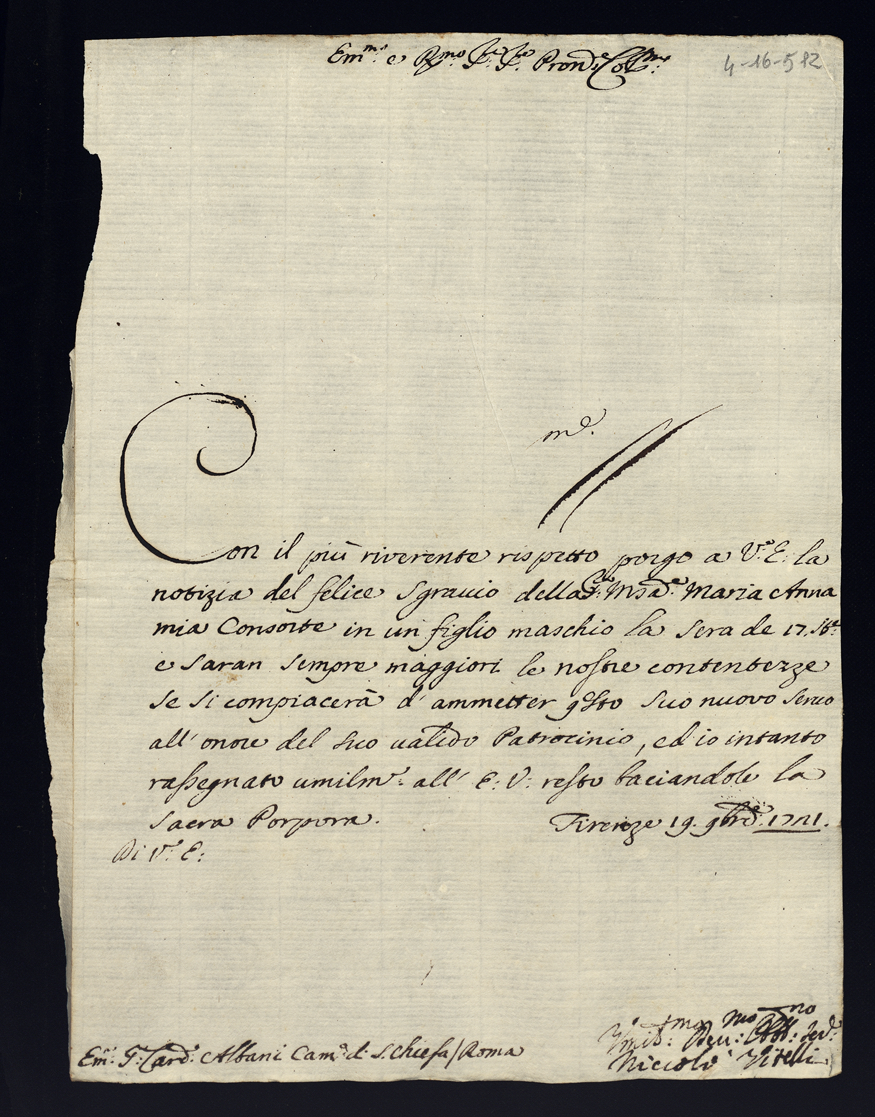 Em.mo e R.mo Sig.re Sig.re Pron.e Col.mo
4-16-582
m.e
Con il più riverente rispetto porgo a V.a E. la
notizia del felice sgravio della Sig.ra Msa.a Maria Anna
mia Consorte in un figlio maschio la sera de 17. st.e
e saran sempre maggiori le nostre contentezze
se si compiacerà d'ammetter q.sto suo nuovo servo
all'onore del suo valido Patrocinio, ed io intanto
rassegnato umilm.e all' E. V. resto baciandole la
Sacra Porpora.
Firenze 19. 9bre 1721.
Di V.a E:
Em.o S.r Card. Albani Cam.o di S. Chiesa / Roma
Um.o Dev: Obb: Ser.
Niccolò Vitelli